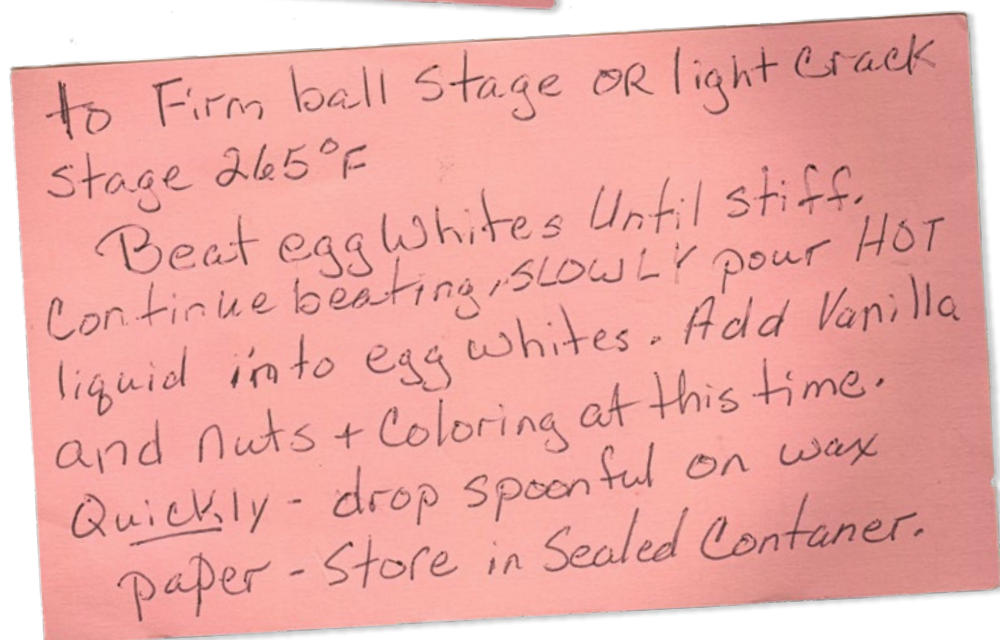 to Firm ball Stage OR light Crack
Stage 265°F
Beat egg Whites Until stiff.
Continue beating, SLOWLY pour HOT
liquid into egg whites. Add Vanilla
and nuts + Coloring at this time.
Quickly - drop spoonful on wax
paper - Store in Sealed Contaner.